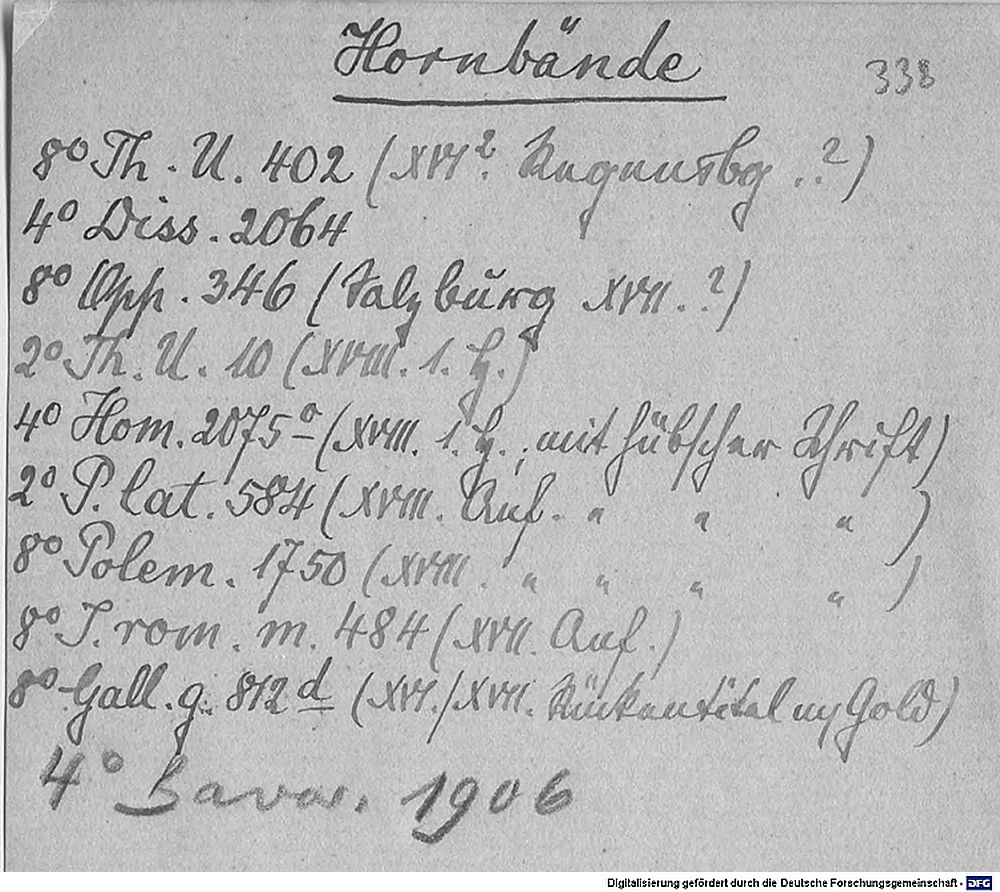 Hornbände
338
8° Th. U. 402 (XVI². Regensbg ..?)
4° Diss. 2064
8° Opp. 346 (Salzburg XVII. ?)
2° Th. U. 10 (XVIII. 1. H.)
4° Hom. 2075ᵃ (XVIII. 1. H., mit hübscher Schrift)
2° P. lat. 584 (XVIII. Anf. " " ")
8° Polem. 1750 (XVIII. " " " ")
8° J. rom. m. 484 (XVII. Anf.)
8° Gall. g. 812 d (XVI./XVII. Rückentitel in Gold)
4° Bavar. 1906
Digitalisierung gefördert durch die Deutsche Forschungsgemeinschaft - DFG